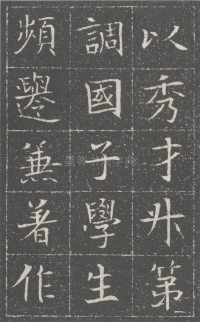 以秀才升第
調國子學生
頻遷兼著作